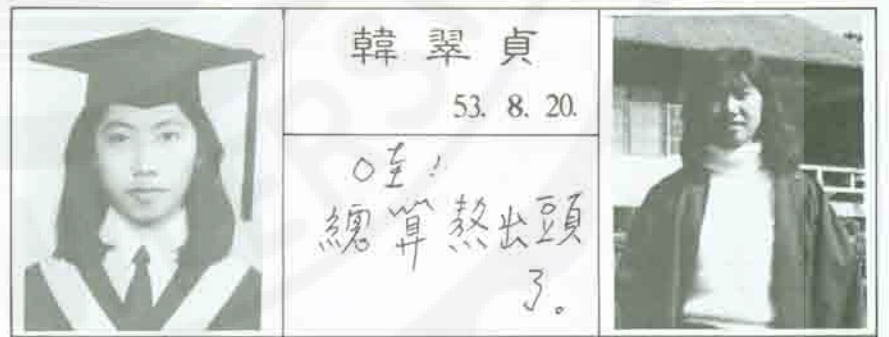 韓翠貞
53. 8. 20.
哇!
總算熬出頭
了。